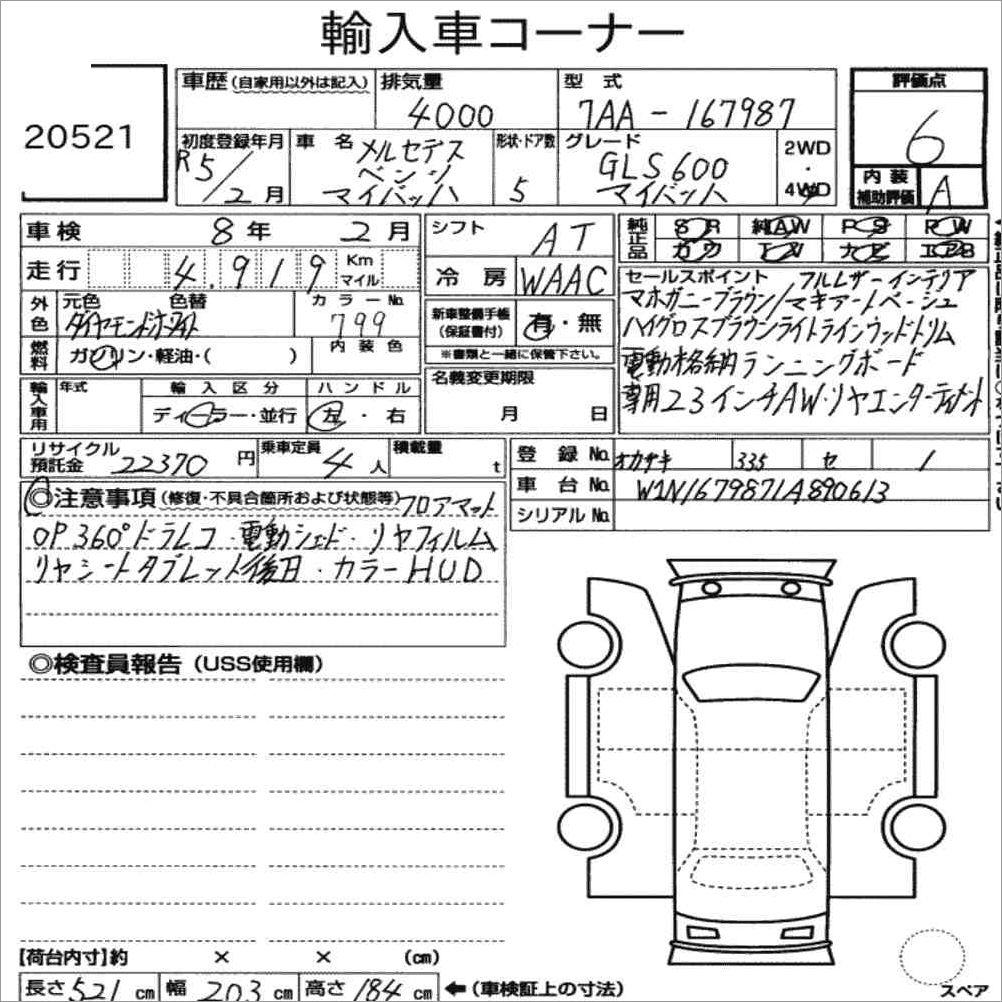 輸入車コーナー
20521
車歴 (自家用以外は記入) 排気量 型式 評価点
4000 7AA-167987 6
初度登録年月 車名 形状・ドア数 グレード 2WD・4WD 内装補助評価 A
R5/2月 メルセデス ベンツ マイバッハ 5 GLS600 マイバッハ
車検 8年 2月 シフト AT 純正品 SR 純AW PS PW
走行 4.919 Km マイル 冷房 WAAC カワ TV ナビ エアB
外色 元色 色替 カラーNo. セールスポイント フルレザーインテリア
ダイヤモンドホワイト 799 新車整備手帳(保証書付) 有・無 マホガニーブラウン/マキアートベージュ
燃料 ガソリン・軽油・( ) 内装色 ※書類と一緒に保管下さい。 ハイグロスブラウンライトラインウッドトリム
電動格納ランニングボード
専用23インチAW・リヤエンターテイメント
輸入車用 年式 輸入区分 ハンドル 名義変更期限
ディーラー・並行 左・右 月 日
リサイクル預託金 22370円 乗車定員 4人 積載量 t 登録No. オカザキ 335 セ 1
車台No. W1N1679871A890613
シリアルNo.
◎注意事項 (修復・不具合箇所および状態等) フロアマット
OP360°ドラレコ・電動シェード・リヤフィルム
リヤシートタブレット後日・カラーHUD
◎検査員報告 (USS使用欄)
【荷台内寸】約 × × (cm)
長さ521cm 幅203cm 高さ184cm ←(車検証上の寸法)
スペア